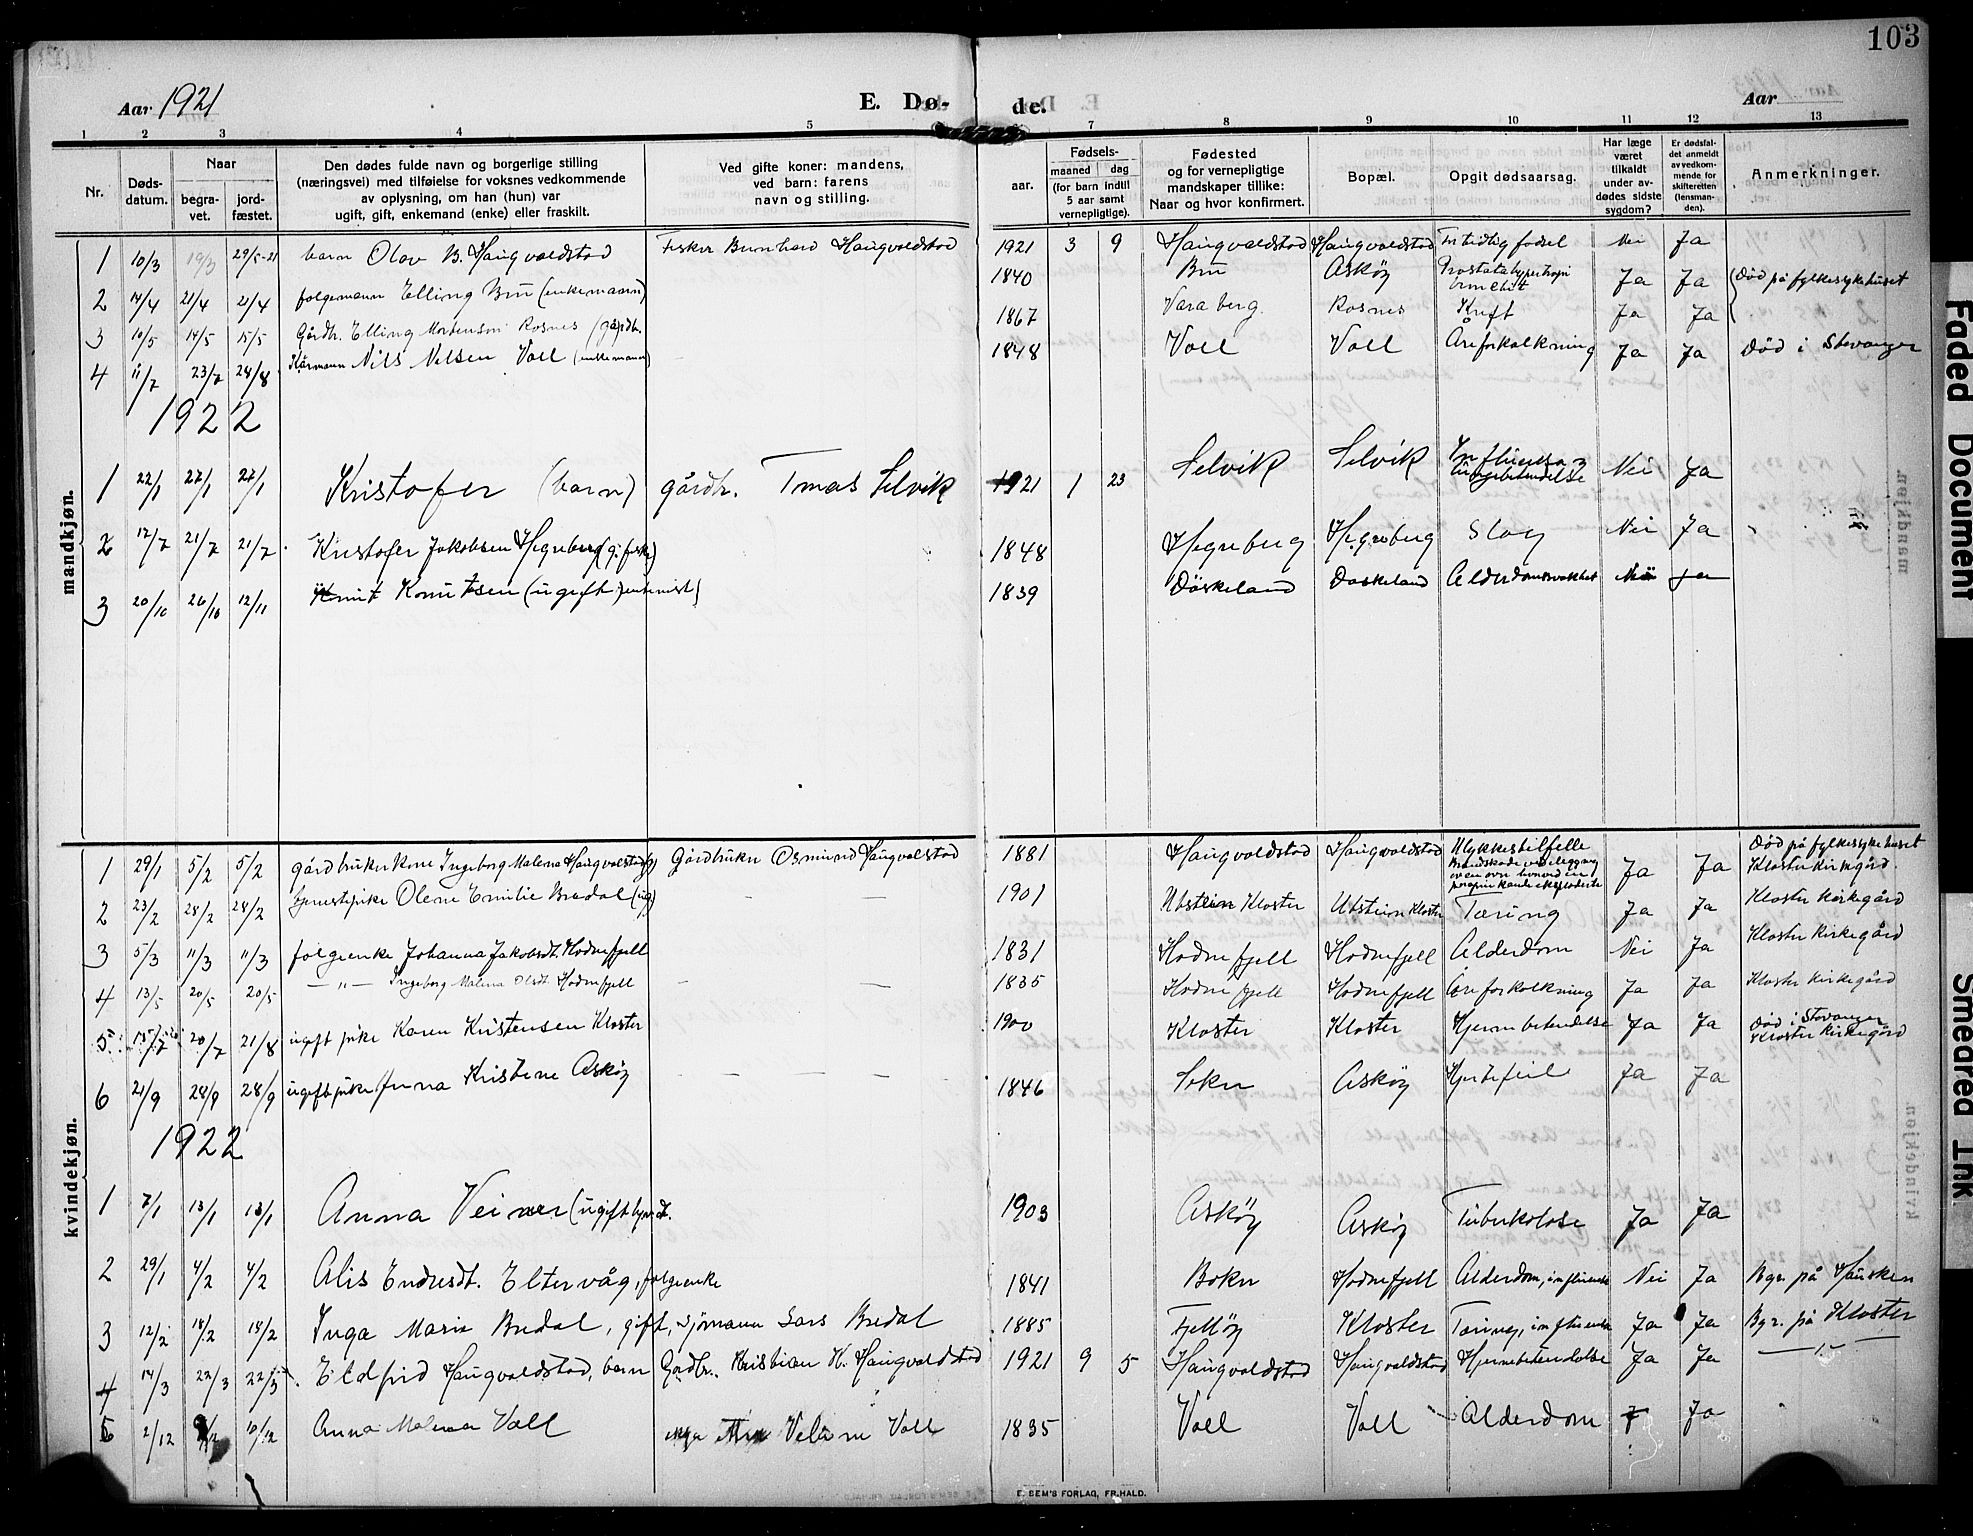 103
Aar 1921 E. Dø- de. Aar
1 2 3 4 5 7 8 9 10 11 12 13
Nr. Døds-datum. Naar begra-vet. jord-fæstet. Den dødes fulde navn og borgerlige stilling (næringsvei) med tilføielse for voksnes vedkommende av oplysning, om han (hun) var ugift, gift, enkemand (enke) eller fraskilt. Ved gifte koner: mandens, ved barn: farens navn og stilling. aar. Fødsels- maaned dag (for barn indtil 5 aar samt vernepligtige). Fødested og for vernepligtige mandskaper tillike: Naar og hvor konfirmert. Bopæl. Opgit dødsaarsag. Har læge været tilkaldt under av-dødes sidste sygdom? Er dødsfal-det anmeldt av vedkom-mende for skifteretten (lensman-den). Anmerkninger.
mandkjøn.
1 10/3 19/3 29/5-21 barn Olav B. Haugvaldstad Fisker Bernhard Haugvaldstad 1921 3 9 Haugvaldstad Haugvaldstad For tidlig fødsel Nei Ja
2 14/4 21/4 21/4 folgemann Elling Bru (enkemann) 1840 Bru Askøy Prostatahypertrofi Ja Ja Død på fylkessykehuset
3 10/5 14/5 15/5 Gårdbr. Elling Mortensen Rosnes (gårdbr. 1867 Varaberg Rosnes Kreft Ja Ja
4 11/7 23/7 28/8 Kårmann Nils Nilsen Voll (enkemann) 1848 Voll Voll Åreforkalkning Ja Ja Død i Stavanger
1922
1 22/1 27/1 27/1 Kristofer (barn) gårdbr. Tmas Selvik 1921 1 23 Selvik Selvik Influensa Nei Ja
2 17/7 21/7 21/7 Kristofer Jakobsen Hegreberg (g. fisker) 1848 Hegreberg Hegreberg Slag Nei Ja
3 20/10 26/10 12/11 Knut Knutsen (ugift) 1839 Døskeland Døskeland Alderdomssvakhet Nei Ja
kvindekjøn.
1 29/1 5/2 5/2 gårdbrukerkone Ingeborg Malena Haugvalstad (g) Gårdbruker Osmund Haugvalstad 1881 Haugvaldstad Haugvaldstad Ulykkestilfelle Brandskade ved ilegging Ja Ja Død på fylkessykehuset Kloster Kirkegård.
2 23/2 28/2 28/2 tjenestepike Olene Emilie Bredal (ug) — — 1901 Utstein Kloster Utstein Kloster Tæring Ja Ja Kloster kirkegård
3 5/3 11/3 11/3 folgeenke Johanna Jakobsdt. Hodnefjell 1831 Hodnefjell Hodnefjell Alderdom Nei Ja Kloster Kirkegård
4 13/5 20/5 20/5 — " — Ingeborg Malena Olsdt. Hodnefjell — — 1835 Hodnefjell Hodnefjell Åreforkalkning Ja Ja Kloster Kirkegård
5 15/7 20/7 21/8 ugift pike Karen Kristensen Kloster 1900 Kloster Kloster Hjernebetendelse Ja Ja Død i Stavanger Kloster Kirkegård
6 21/9 28/9 28/9 ugift pike Jenna Kristene Askøy — — — 1846 Sokn Askøy Hjertefeil Ja Ja
1922
1 7/1 13/1 13/1 Anna Veiner (ugift 1903 Askøy Askøy Tuberkolose Ja Ja
2 29/1 4/2 4/2 Alis Endresdt. Eltervåg, folgeenke 1841 Bokn Hodnefjell Alderdom, influensa Nei Ja Bgr. på Hausken
3 12/2 18/2 18/2 Inga Marie Bredal, gift, Sjømann Lars Bredal 1885 Fjelløy Kloster Tæring, influensa Ja Ja Bgr. på Kloster
4 14/3 22/3 22/3 Eldfrid Haugvaldstad, barn Gardbr. Kristian K. Haugvaldstad 1921 9 5 Haugvaldstad Haugvaldstad Hjernebetendelse Ja Ja — " —
5 2/12 10/12 Anna Malena Voll Voll 1835 Voll Voll Alderdom Ja
E. SEM'S FORLAG, FR.HALD.
Faded Document
Smeared Ink